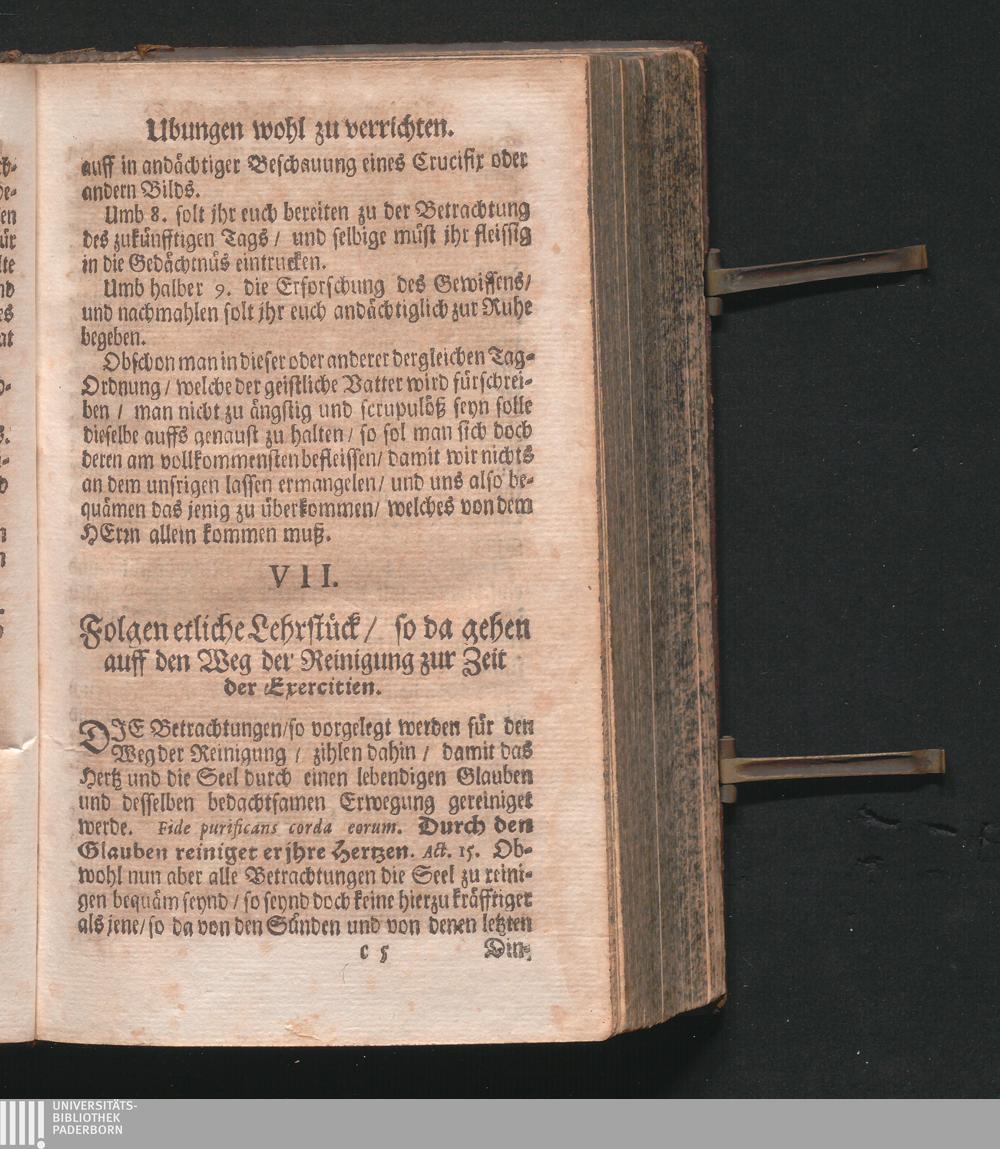 Ubungen wohl zu verrichten.
auff in andächtiger Beschauung eines Crucifix oder
andern Bilds.
Umb 8. solt jhr euch bereiten zu der Betrachtung
des zukünfftigen Tags / und selbige müst jhr fleissig
in die Gedächtnüs eintrucken.
Umb halber 9. die Erforschung des Gewissens/
und nachmahlen solt jhr euch andächtiglich zur Ruhe
begeben.
Obschon man in dieser oder anderer dergleichen Tag-
Ordnung / welche der geistliche Vatter wird fürschrei-
ben / man nicht zu ängstig und scrupulöß seyn solle
dieselbe auffs genaust zu halten / so sol man sich doch
deren am vollkommensten befleissen/ damit wir nichts
an dem unsrigen lassen ermangelen/ und uns also be-
quämen das jenig zu überkommen/ welches von dem
HErrn allein kommen muß.
VII.
Folgen etliche Lehrstück / so da gehen
auff den Weg der Reinigung zur Zeit
der Exercitien.
DIE Betrachtungen/so vorgelegt werden für den
Weg der Reinigung / zihlen dahin / damit das
Hertz und die Seel durch einen lebendigen Glauben
und desselben bedachtsamen Erwegung gereiniget
werde. Fide purificans corda eorum. Durch den
Glauben reiniget er jhre Hertzen. Act. 15. Ob-
wohl nun aber alle Betrachtungen die Seel zu reini-
gen bequäm seynd / so seynd doch keine hierzu kräfftiger
als jene/ so da von den Sünden und von denen letzten
c 5 Din-
UNIVERSITÄTS-
BIBLIOTHEK
PADERBORN